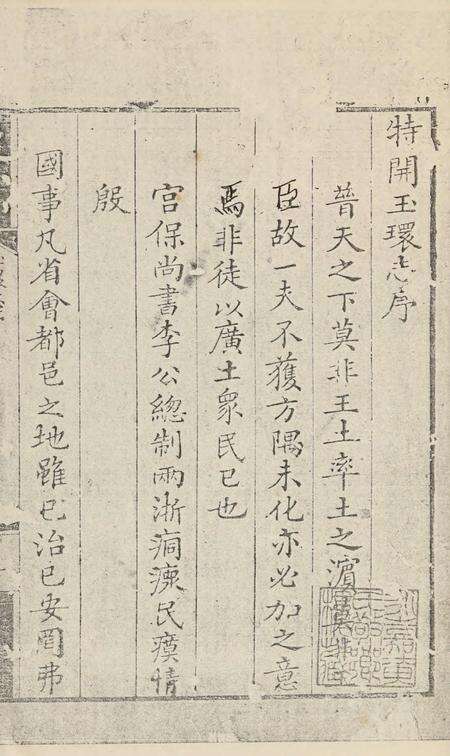 特開玉環志序
普天之下莫非王土率土之濱莫非王
臣故一夫不獲方隅未化亦必加之意
焉非徒以廣土眾民已也
宮保尚書李公總制兩浙痌瘝民瘼情
殷
國事凡省會都邑之地雖已治已安罔弗